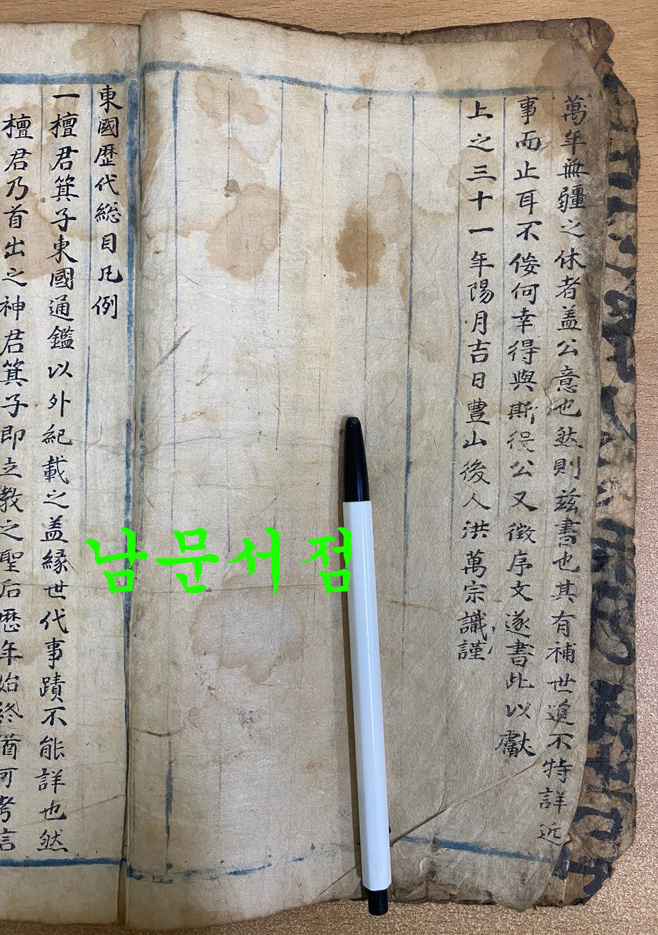 萬年無疆之休者盖公意也然則玆書也其有補世道不特詳近
事而止耳不佞何幸得與斯役公又徵序文遂書此以獻
上之三十一年陽月吉日豊山後人洪萬宗謹識
東國歷代総目凡例
一檀君箕子東國通鑑以外紀載之盖緣世代事蹟不能詳也然
檀君乃首出之神君箕子即立敎之聖后歷年始終猶可考言
남문서점